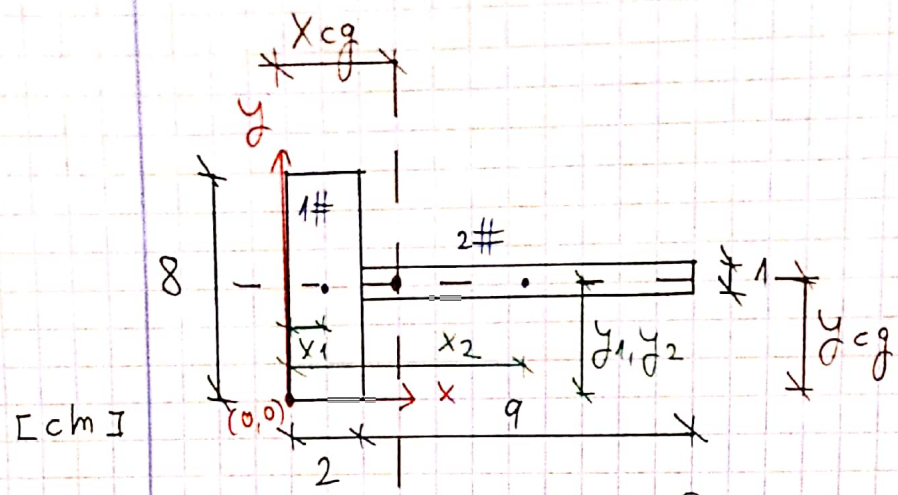 Xcg
y
1#
2#
8
1
x1
x2
y1, y2
ycg
(0,0)
x
[cm]
2
9